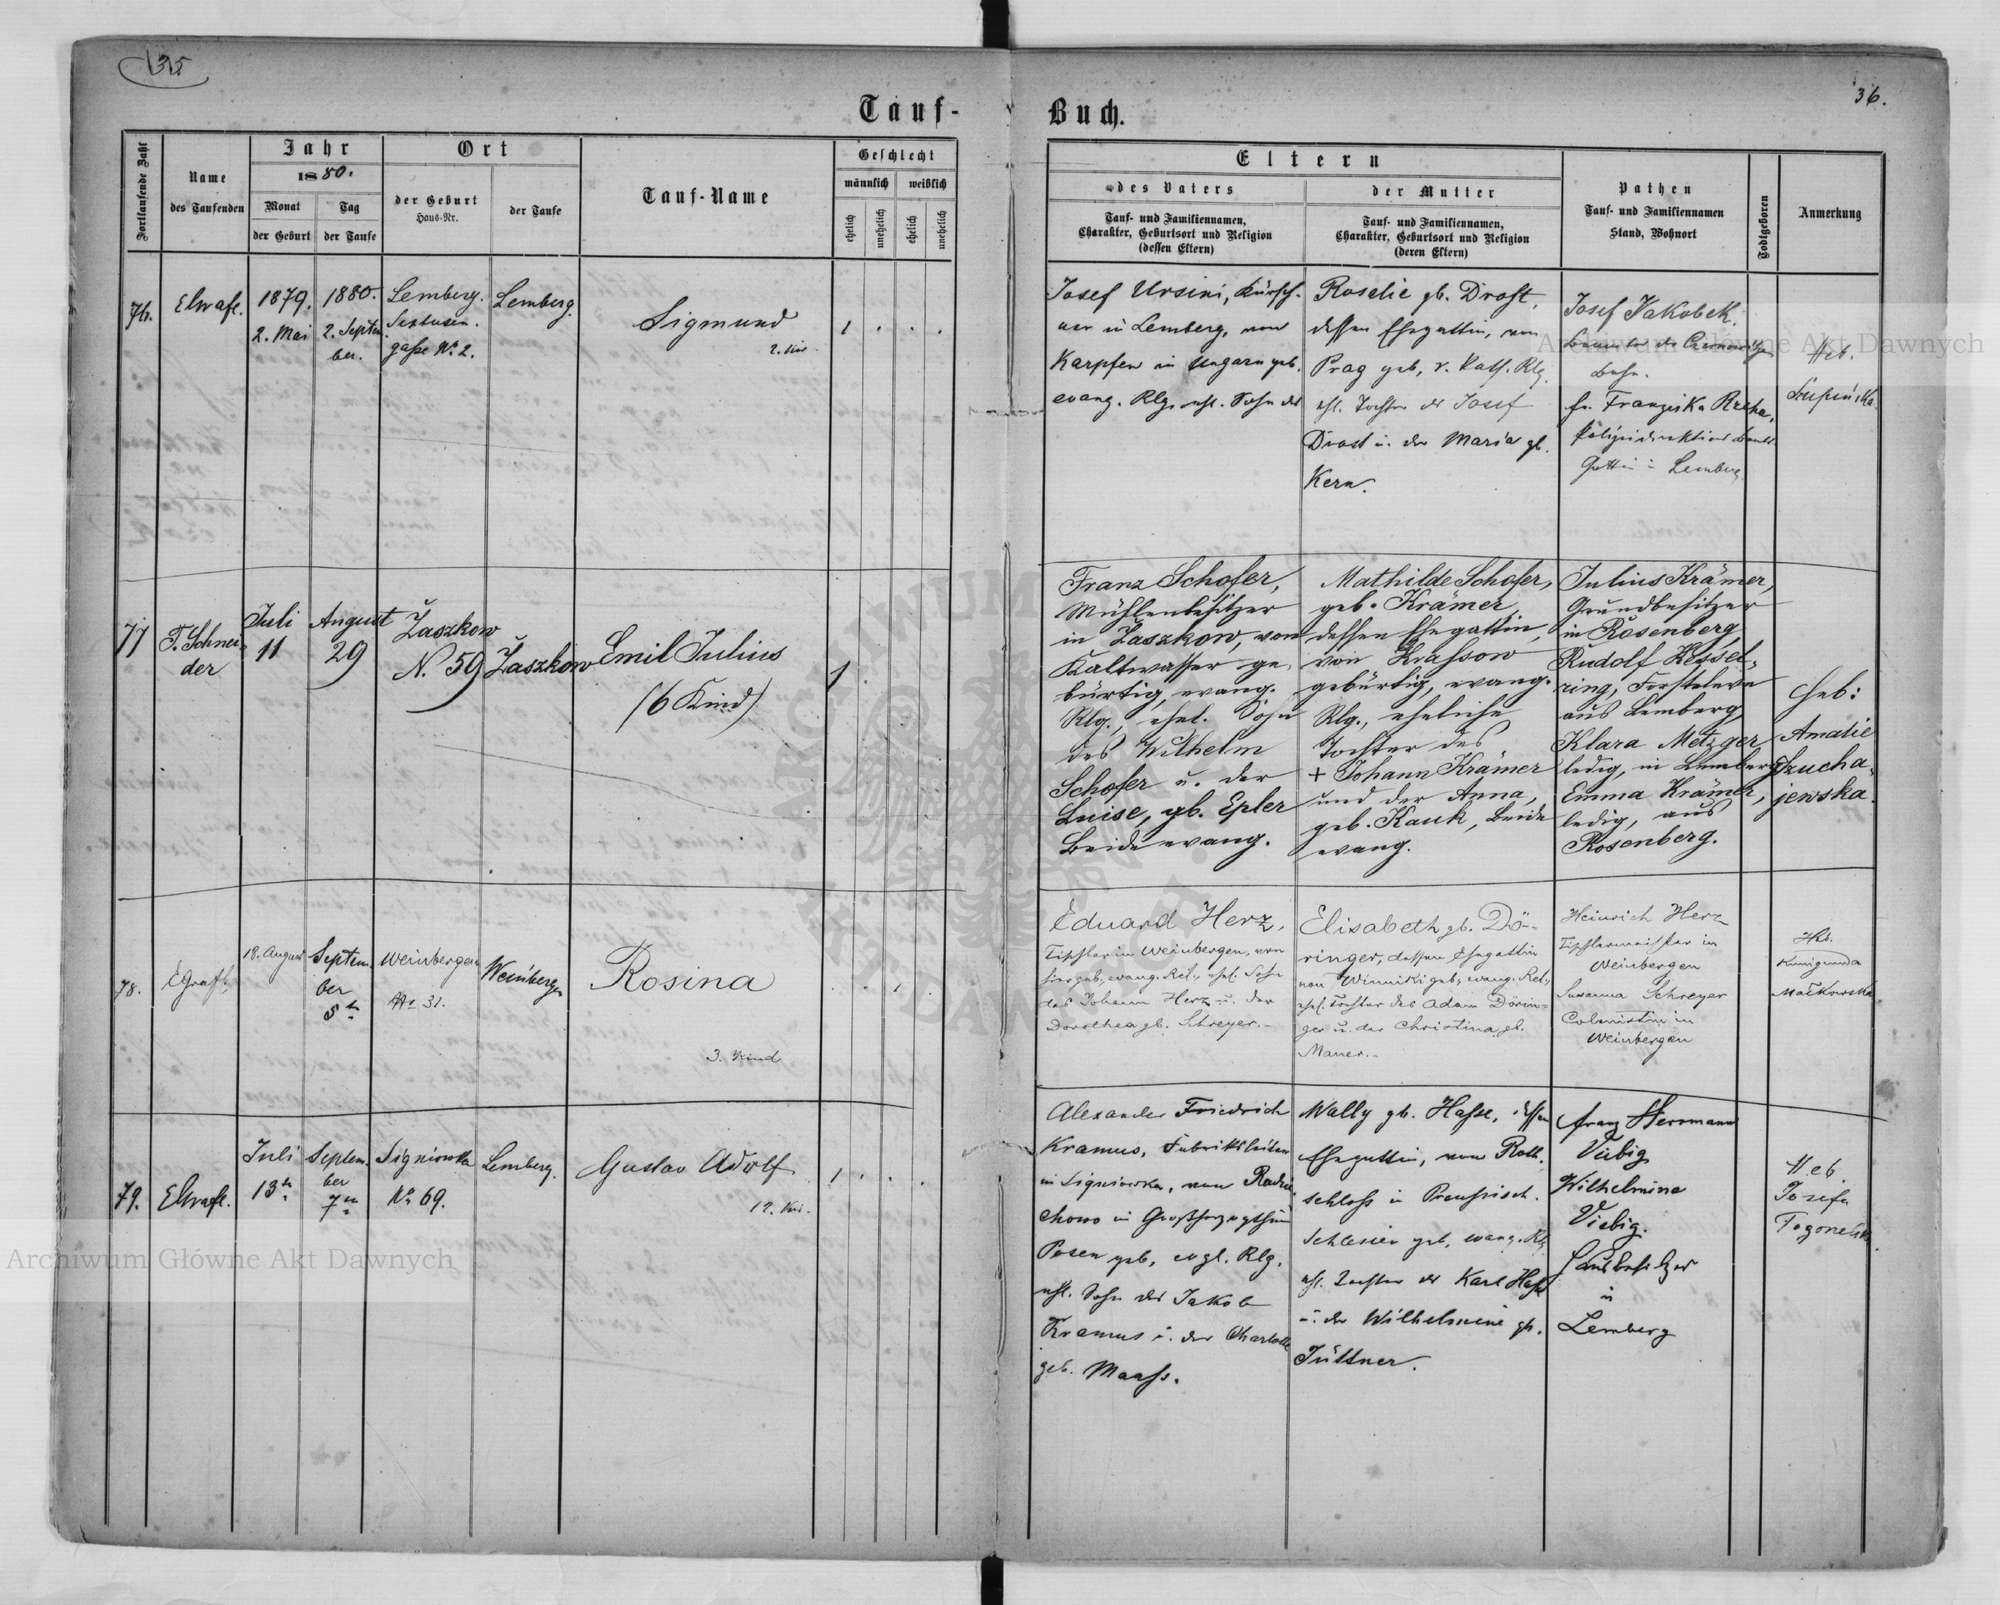 35
36.
Tauf-
Buch.
Fortlaufende Zahl
Name
des Taufenden
Jahr
1880.
Monat
der Geburt
Tag
der Taufe
Ort
der Geburt
Haus-Nr.
der Taufe
Tauf-Name
Geschlecht
männlich
weiblich
ehelich
unehelich
ehelich
unehelich
Eltern
des Vaters
Tauf- und Familiennamen,
Charakter, Geburtsort und Religion
(dessen Eltern)
der Mutter
Tauf- und Familiennamen,
Charakter, Geburtsort und Religion
(deren Eltern)
Pathen
Tauf- und Familiennamen
Stand, Wohnort
Todtgeboren
Anmerkung
76.
1879.
2. Mai
1880.
2. Septem
ber.
Lemberg.
gasse No 2.
Lemberg.
Sigmund
1
Josef Ursini, Kürsch-
ner in Lemberg, von
Karpfen in Ungarn geb.
evang. Rlg. ehl. Sohn des
Rosalie gb. Drost,
dessen Ehegattin, von
Prag geb, r. Kath. Rlg.
ehl. Tochter des Josef
Drost u. der Maria gb.
Kern.
Josef Jakobek.
Bahn.
fr. Franziska
Gattin in Lemberg
Heb.
77
T. Schnei-
der
Juli
11
August
29
Żaszkow
N. 59
Żaszkow
Emil Julius
(6 Kind)
1
Franz Schofer,
Mühlenbesitzer
in Żaszkow, von
Kaltwasser ge
bürtig, evang.
Rlg., ehel. Sohn
des Wilhelm
Schofer u. der
Luise, gb. Epler
Beide evang.
Mathilde Schofer,
geb. Krämer,
dessen Ehegattin,
von Krassow
gebürtig, evang.
Rlg., eheliche
Tochter des
+ Johann Krämer
und der Anna,
geb. Kauk, Beide
evang.
Julius Krämer,
Grundbesitzer
in Rosenberg
Rudolf Kessel-
ring, Forsteleve
aus Lemberg,
Klara Metzger
ledig, in Lemberg
Emma Krämer,
ledig, aus
Rosenberg.
Heb:
Amalie
jewska.
78.
EGrafl
18. August
Septem
ber
5
Weinbergen
No 31.
Weinbergen
Rosina
3. Kind
Eduard Herz,
Tischler in Weinbergen, von
hier geb, evang. Rel., ehel. Sohn
des Johann Herz u. der
Dorothea gb. Schreyer.-
Elisabeth gb. Dö-
ringer, dessen Ehegattin
von Winniki geb, evang. Rel.,
ehel. Tochter des Adam Dörin-
ger u. der Christina gb.
Mauer.-
Heinrich Herz
Tischlermeister in
Weinbergen
Susanna Schreyer
Colonistin in
Weinbergen
Heb.
Kunigunda
Małkowska
79.
Juli
13
Septem
ber
7
Signiowka
No 69.
Lemberg.
Gustav Adolf
12. Kin.
1
Alexander Friedrich
Kramus, Fabriksleiter
in Signiowka, von
chowo in Großherzogthum
Posen geb, evgl. Rlg.
ehl. Sohn des Jakob
Kramus u. der Charlotte
geb. Maass.
Wally gb. Hasse, dessen
Ehegattin, von Roth-
schloss in Preussisch-
Schlesien geb, evang. Rlg
ehl. Tochter des Karl Hasse
u. der Wilhelmine gb.
Jüttner.
Franz Herrmann
Viebig
Wilhelmine
Viebig.
Hausbesitzer
in
Lemberg
Heb.
Josefa
Archiwum Główne Akt Dawnych
Archiwum Główne Akt Dawnych